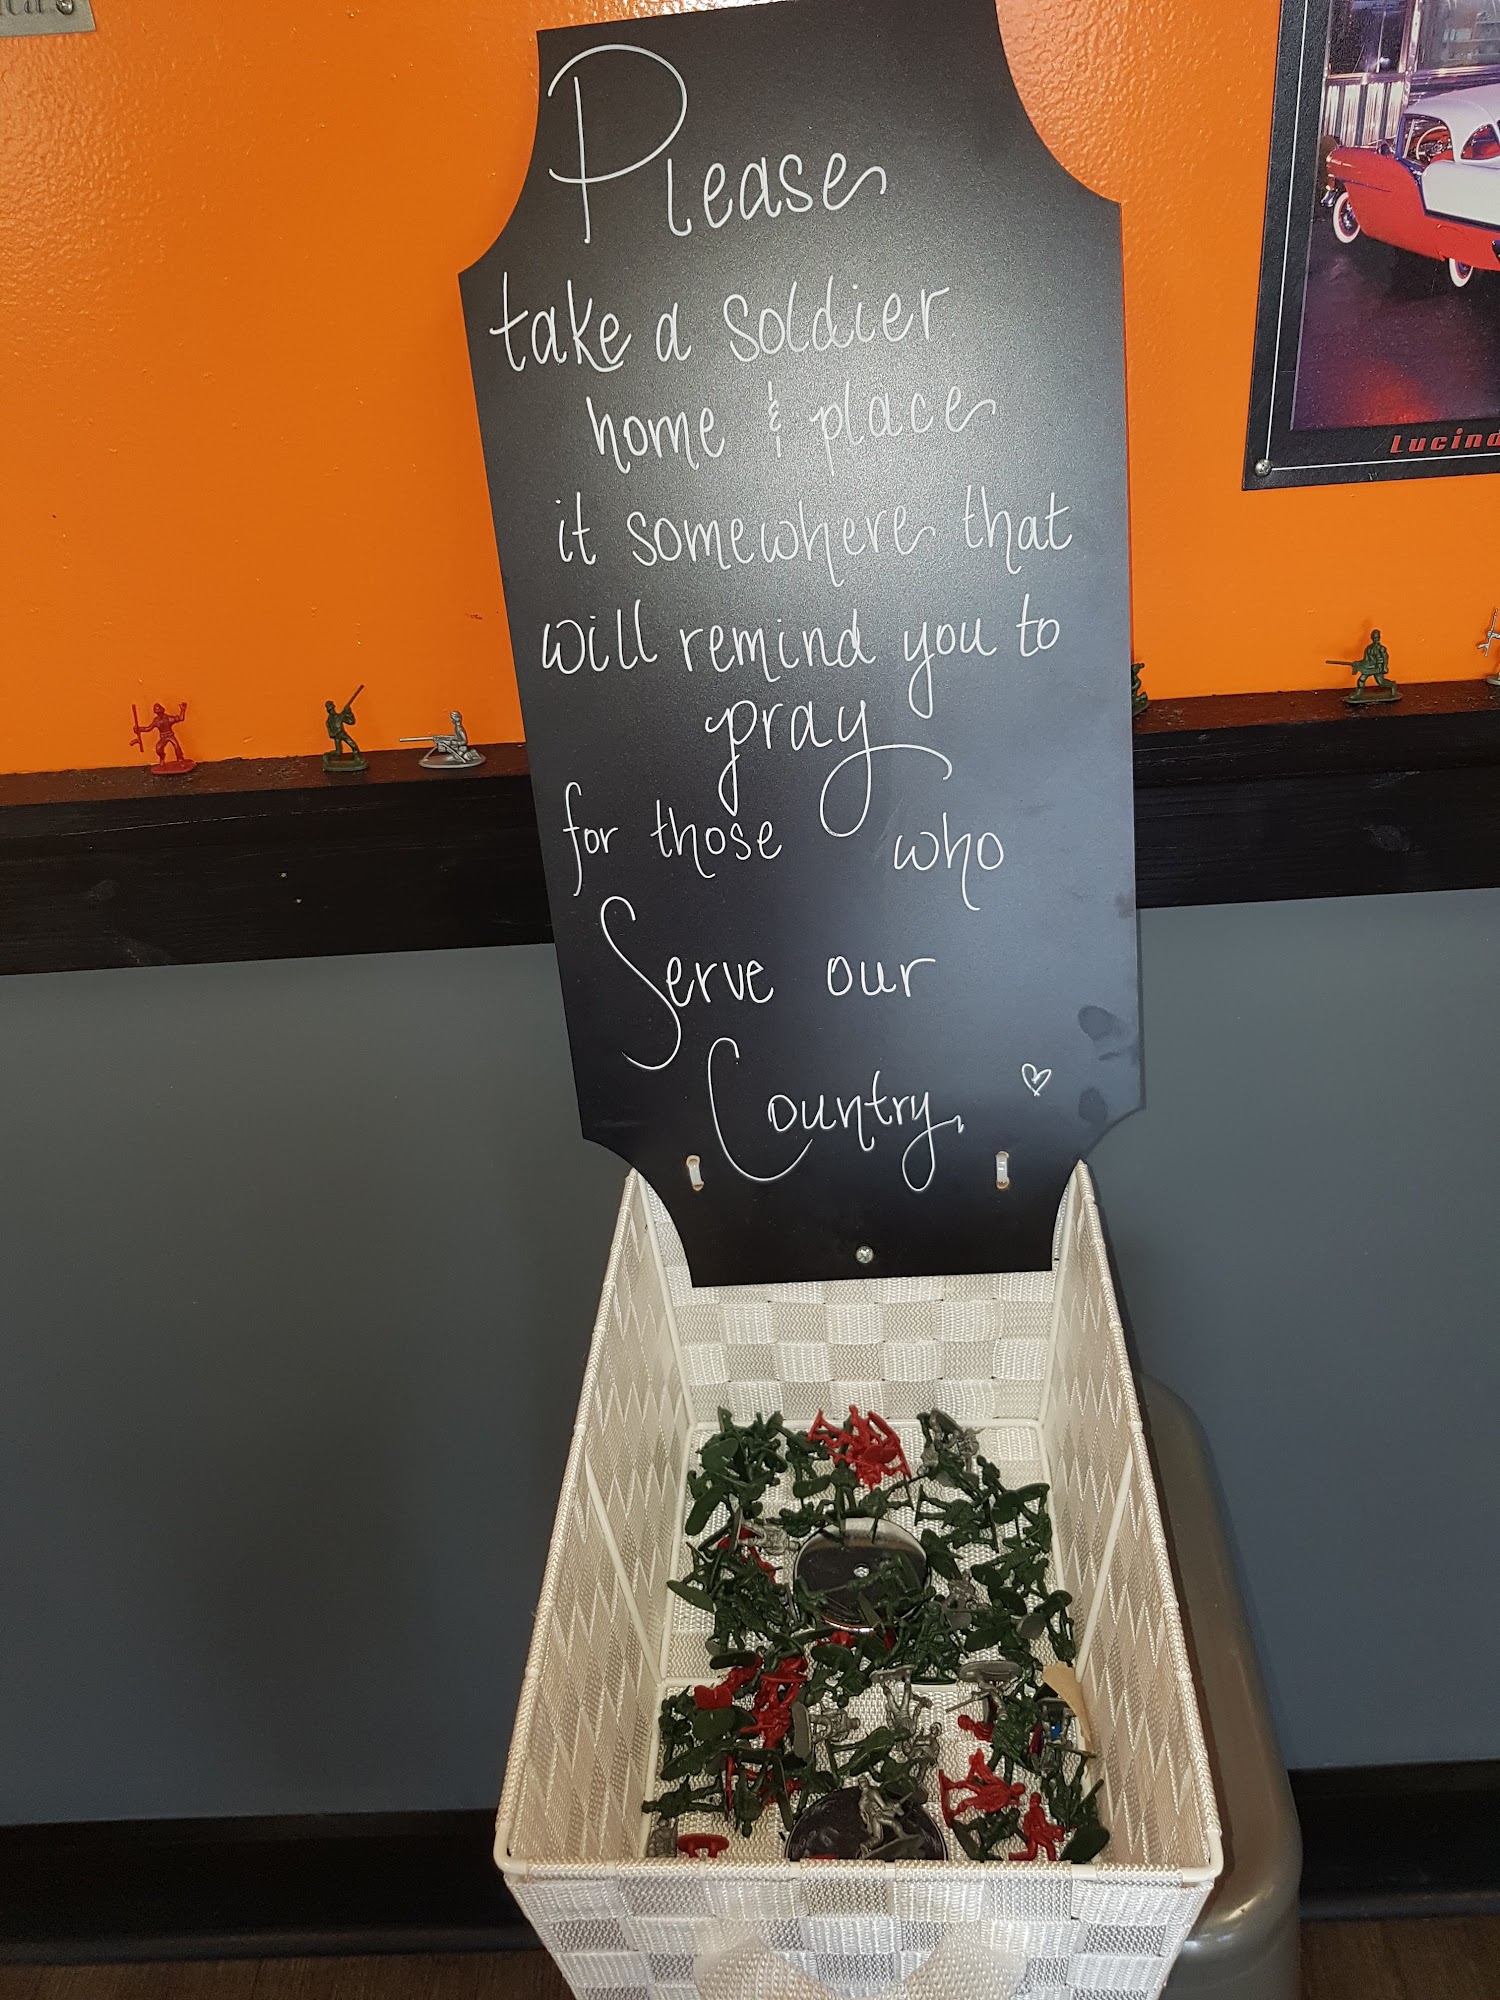 Please
take a soldier
home & place
it somewhere that
will remind you to
pray
for those who
Serve our
Country.